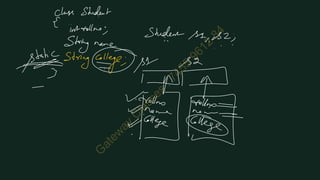 class Student
{
int rollno;
String name
static String College;
}
Student s1, s2;
s1 s2
rollno
name
College
rollno
name
College